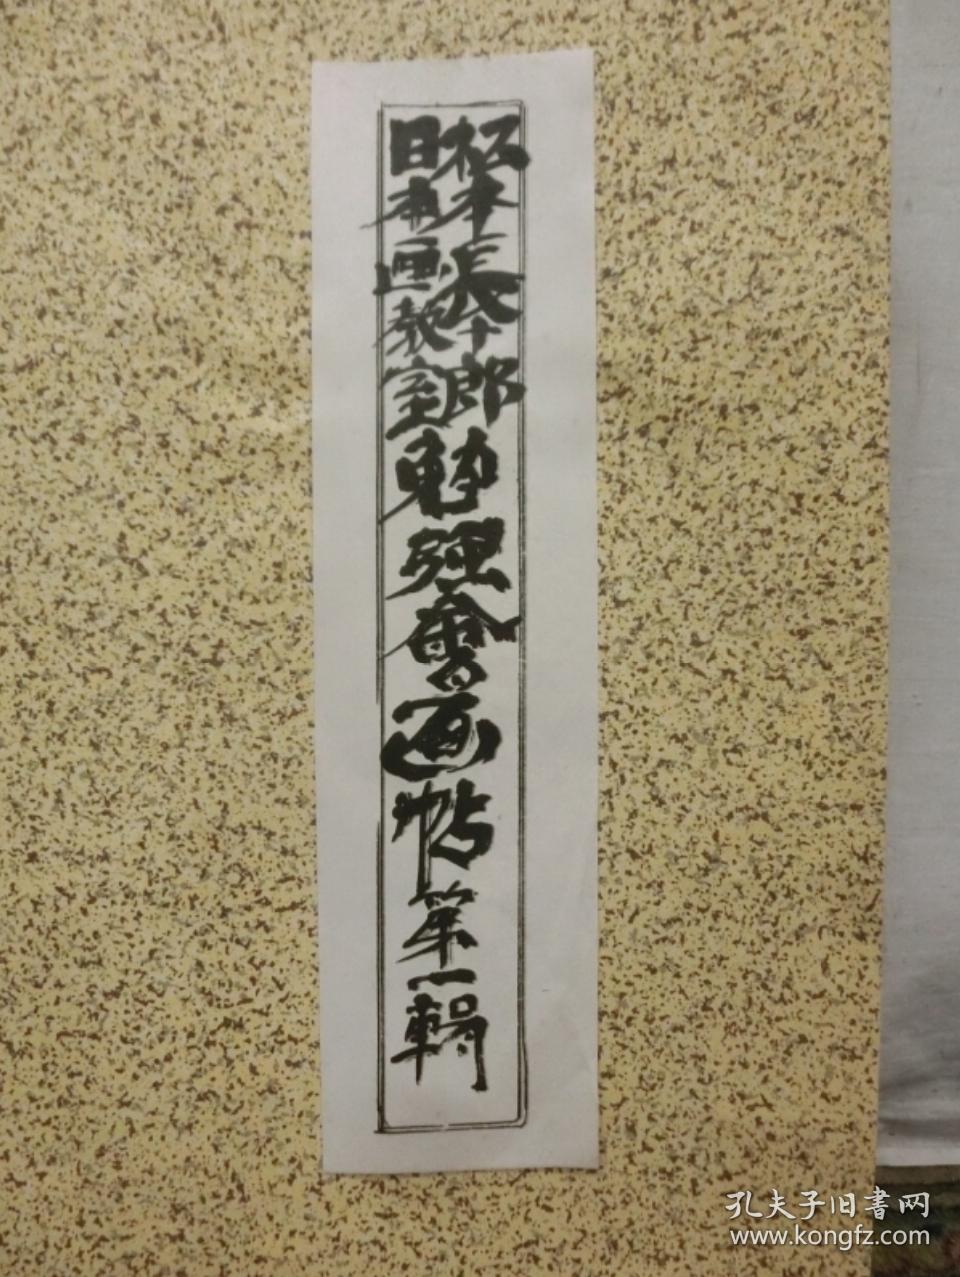 松本長十郎
日本画教室
勉強會画帖第一輯
孔夫子旧書网
www.kongfz.com